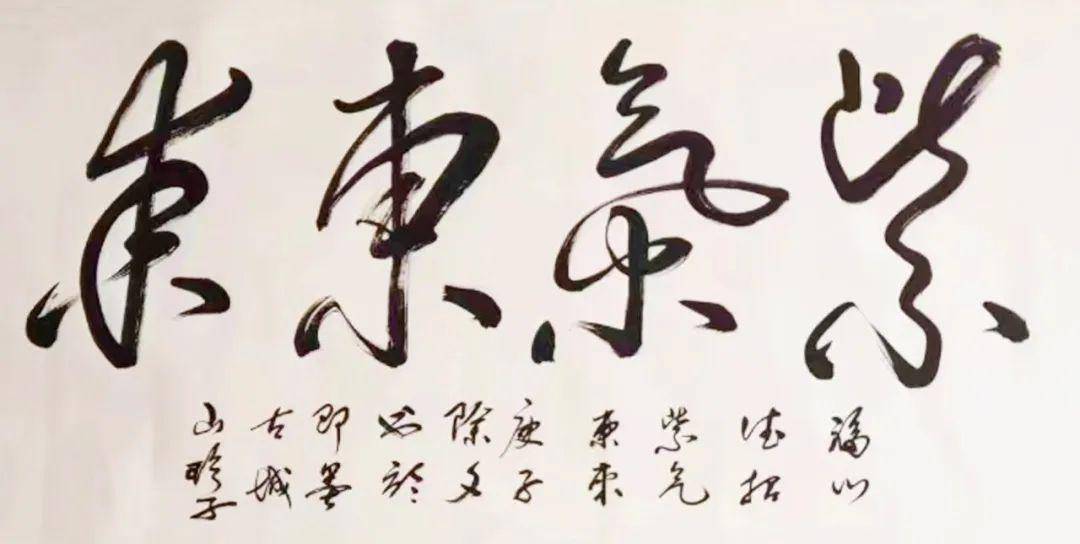 紫氣東來
福以
德招
紫气
東來
庚子
除夕
书於
即墨
古城
山子